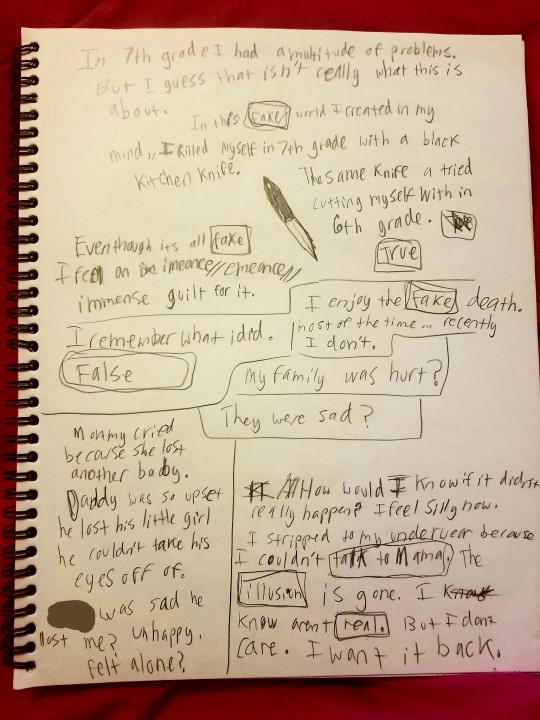 In 7th grade I had a multitude of problems.
But I guess that isn't really what this is
about.
In this fake world I created in my
mind,, I killed myself in 7th grade with a black
kitchen knife.
The same knife a tried
cutting myself with in
6th grade.
True
Eventhough its all fake
I feel an imeance//emeance//
immense guilt for it.
I enjoy the fake death.
most of the time... recently
I don't.
I remember what i did.
False
My family was hurt?
They were sad?
Mommy cried
because she lost
another baby.
Daddy was so upset
he lost his little girl
he couldn't take his
eyes off of.
was sad he
lost me? Unhappy.
felt alone?
How would I know if it didn't
really happen? I feel silly now.
I stripped to my underwear because
I couldn't talk to Mama. The
illusion is gone. I know
know arent real. But I dont
care. I want it back.